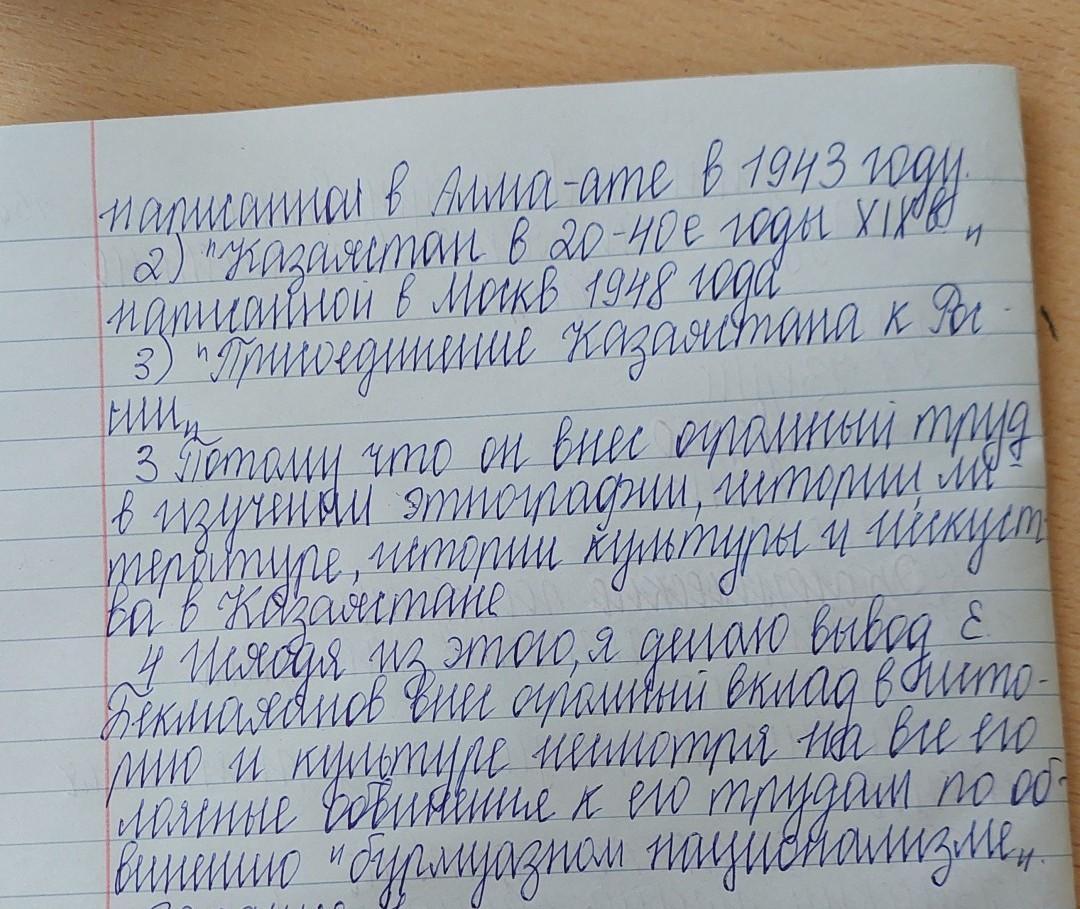 написанной в Алма-ате в 1943 году.
2) "Казахстан в 20-40е годы XIX в"
написанной в Москв 1948 года
3) "Присоединение Казахстана к Рос-
сии"
3 Потому что он внес огромный труд
в изучении этнографии, истории ли-
тературе, истории культуры и искуст-
ва в Казахстане
4 Исходя из этого, я делаю вывод Е.
Бекмаханов внес огромный вклад в исто-
рию и культуре несмотря на все его
ложные обвинения к его трудам по об-
винению "буржуазном национализме".